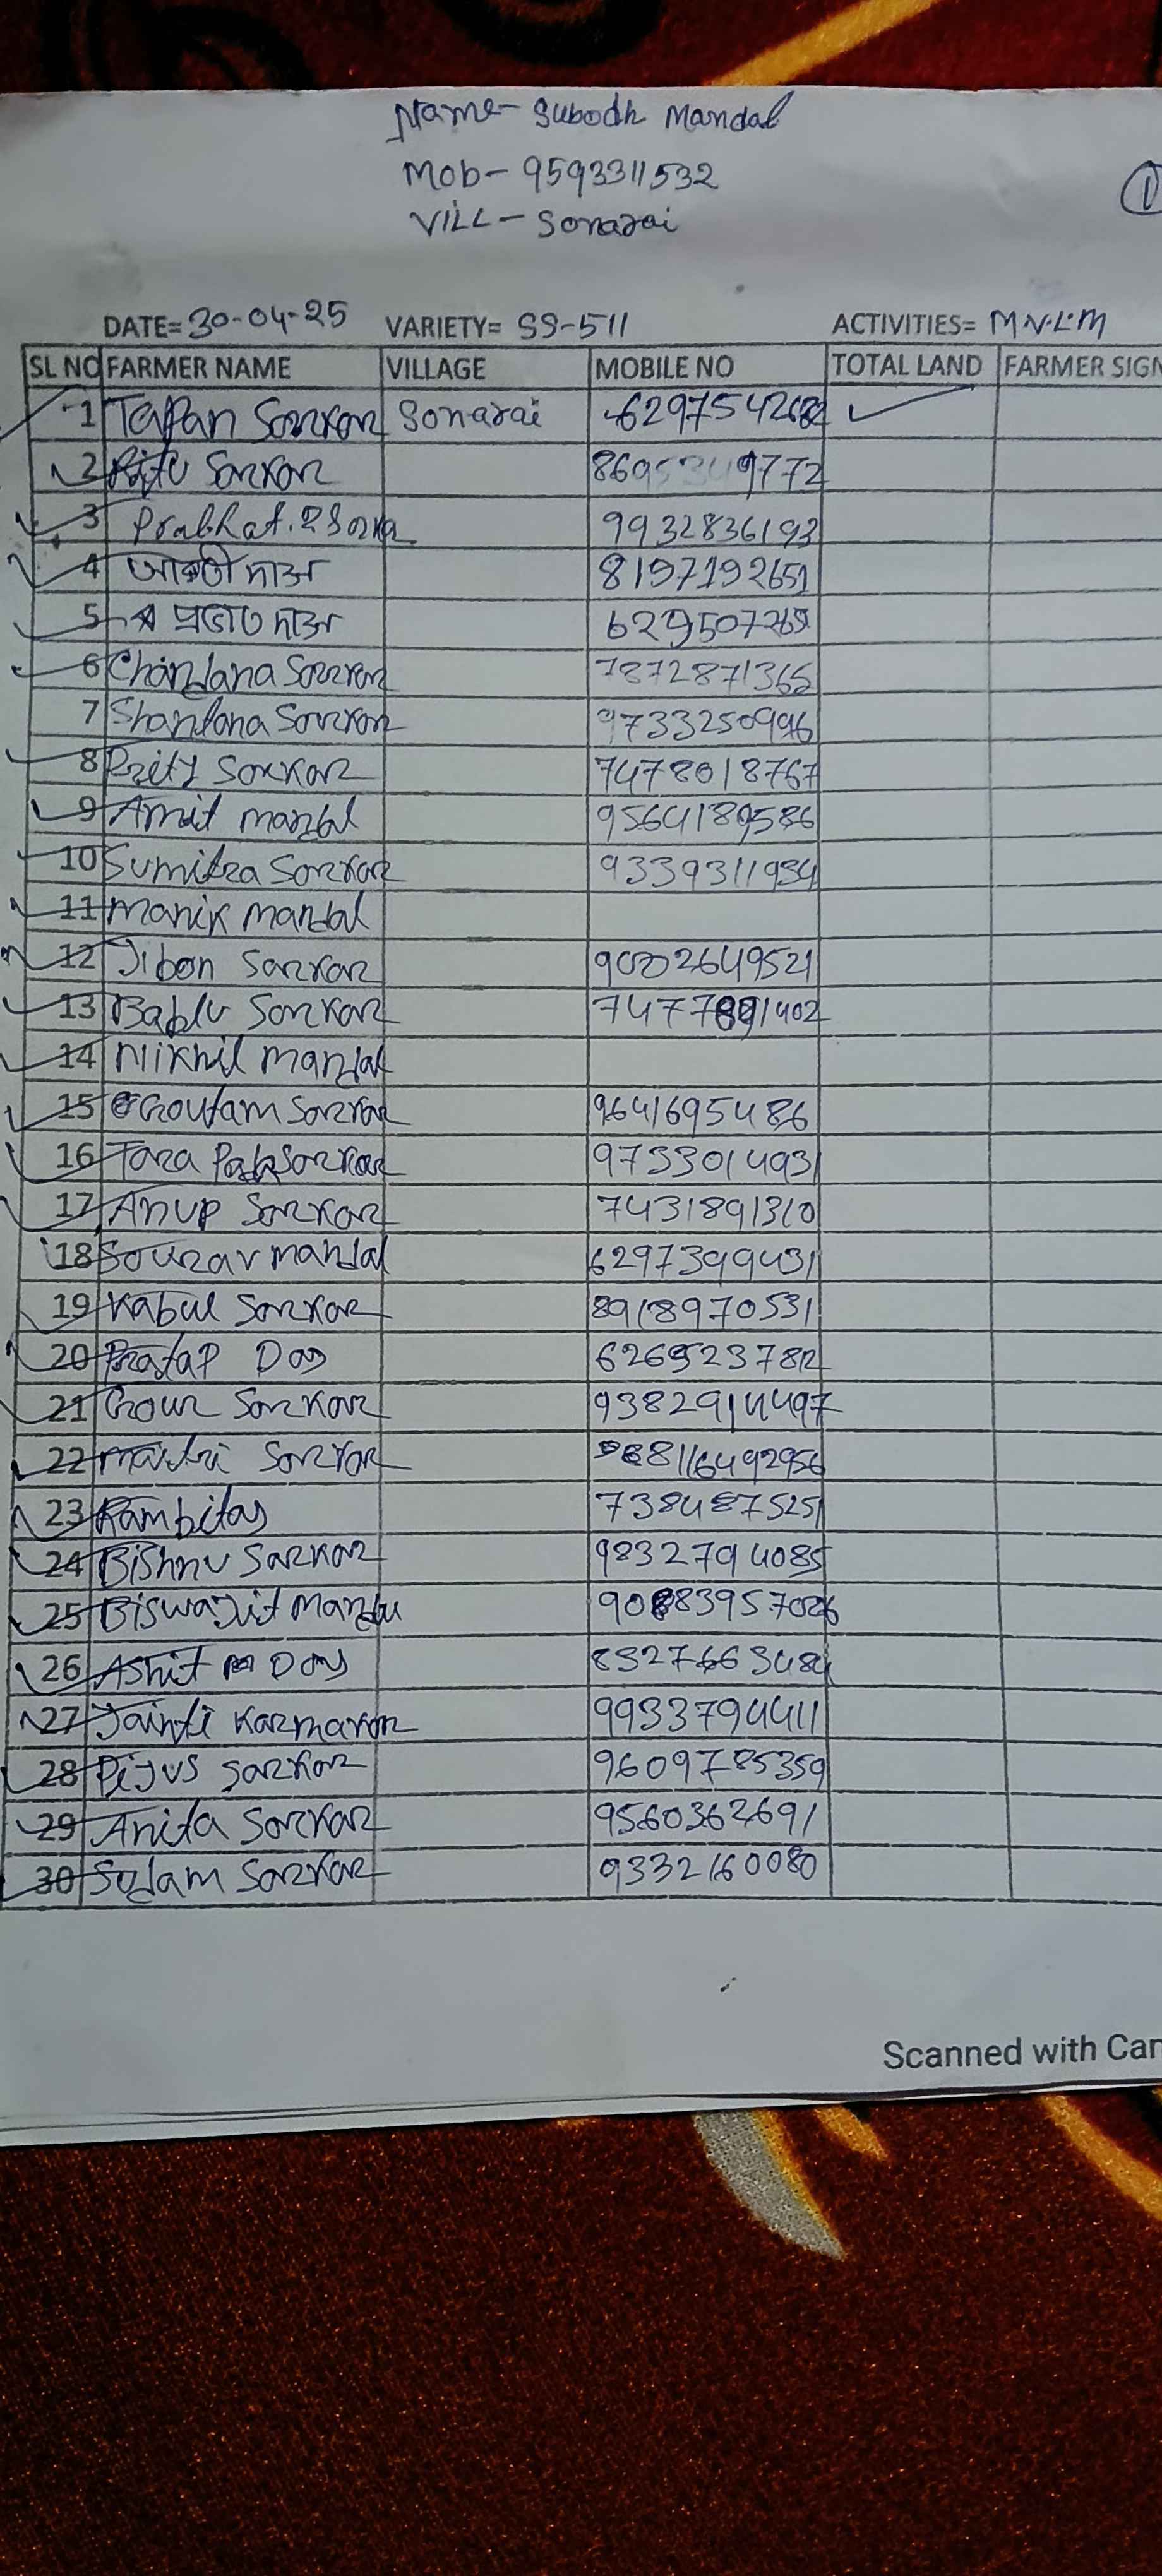 Name- Subodh Mandal
Mob- 9593311532
VILL- Sonarai
1
DATE= 30-04-25 VARIETY= SS-511 ACTIVITIES= M.V.L.M
SL NO FARMER NAME VILLAGE MOBILE NO TOTAL LAND FARMER SIGN
1 Tapan Sarkar Sonarai
2 Ritu Sarkar
3 Prabhat 9932836193
4 আরতী দাস 8197192651
5 প্রভাত দাস
6 Chandana Sarkar 7872871365
7 Shantana Sarkar 9733250996
8 Prity Sarkar 7478018767
9 Amit mandal 9564189586
10 Sumitra Sarkar 9339311934
11 Manik mandal
12 Jibon Sarkar
13 Bablu Sarkar
14 Nikhil Mandal
15 Goutam Sarkar 9641695486
16 Tara Pada Sarkar 9733014931
17 Anup Sarkar 7431891310
18 Sourav mandal 6297399431
19 Kabul Sarkar 8918970531
20 Pratap Das
21 Gour Sarkar 9382914497
22 Sarkar
23 7384875251
24 Bishnu Sarkar 9832794085
25 Biswajit Mandal
26 Ashit Das
27 Jainti Karmakar 9933794411
28 Pijus Sarkar 9609785359
29 Anita Sarkar 9560362691
30 Sarkar 9332160080
Scanned with Cam